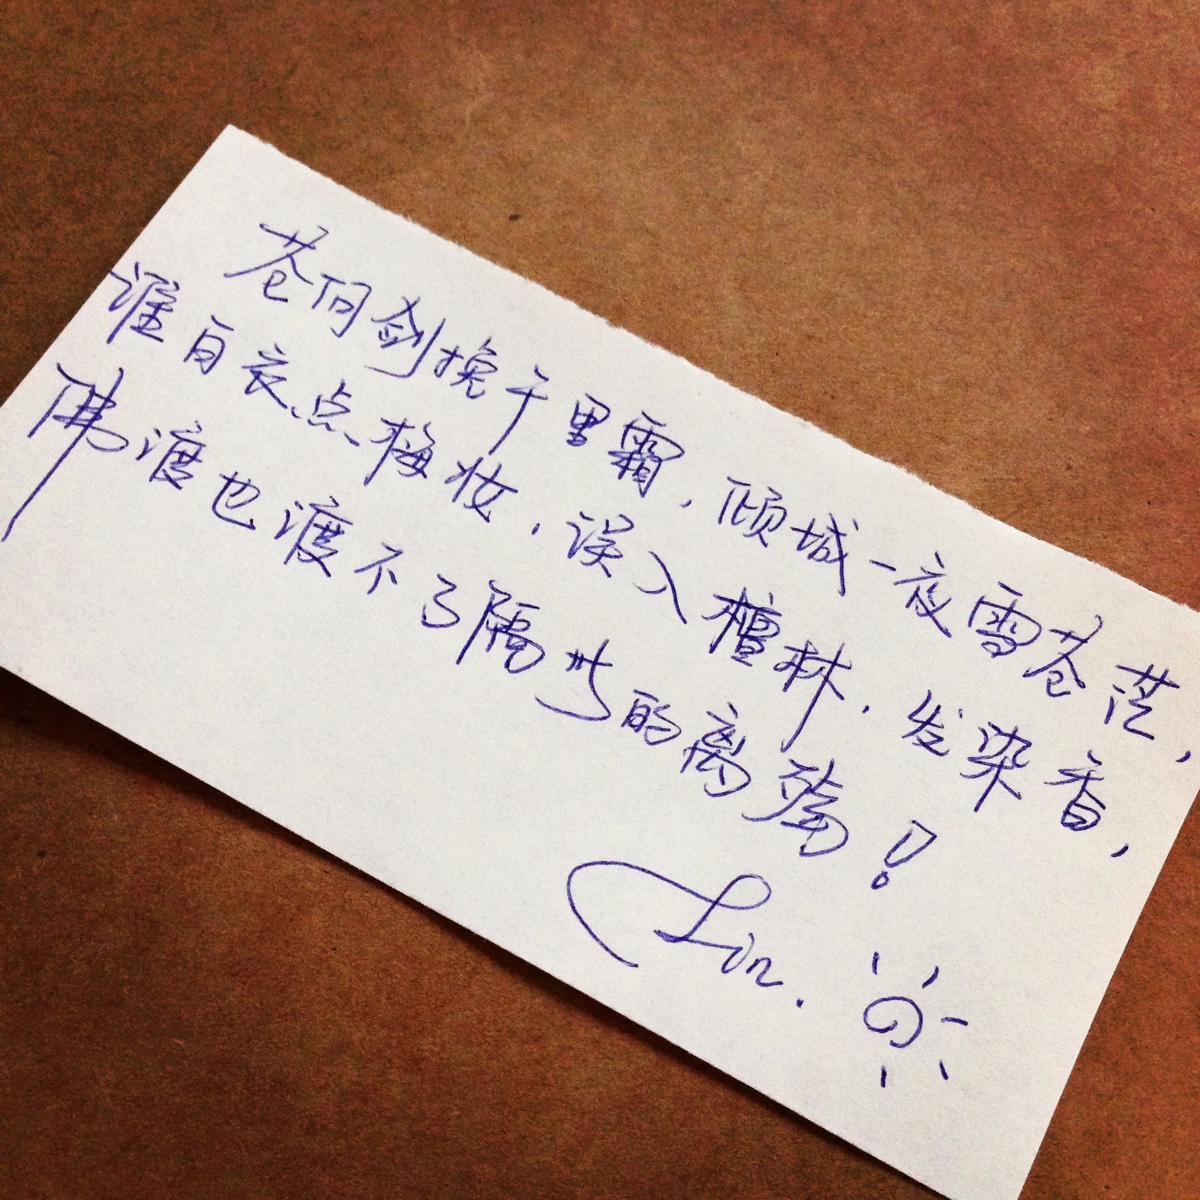 苍问剑挽千里霜，倾城一夜雪苍茫，
谁白衣点梅妆，误入檀林，发染香，
佛渡也渡不了隔世的离殇！
Lin.